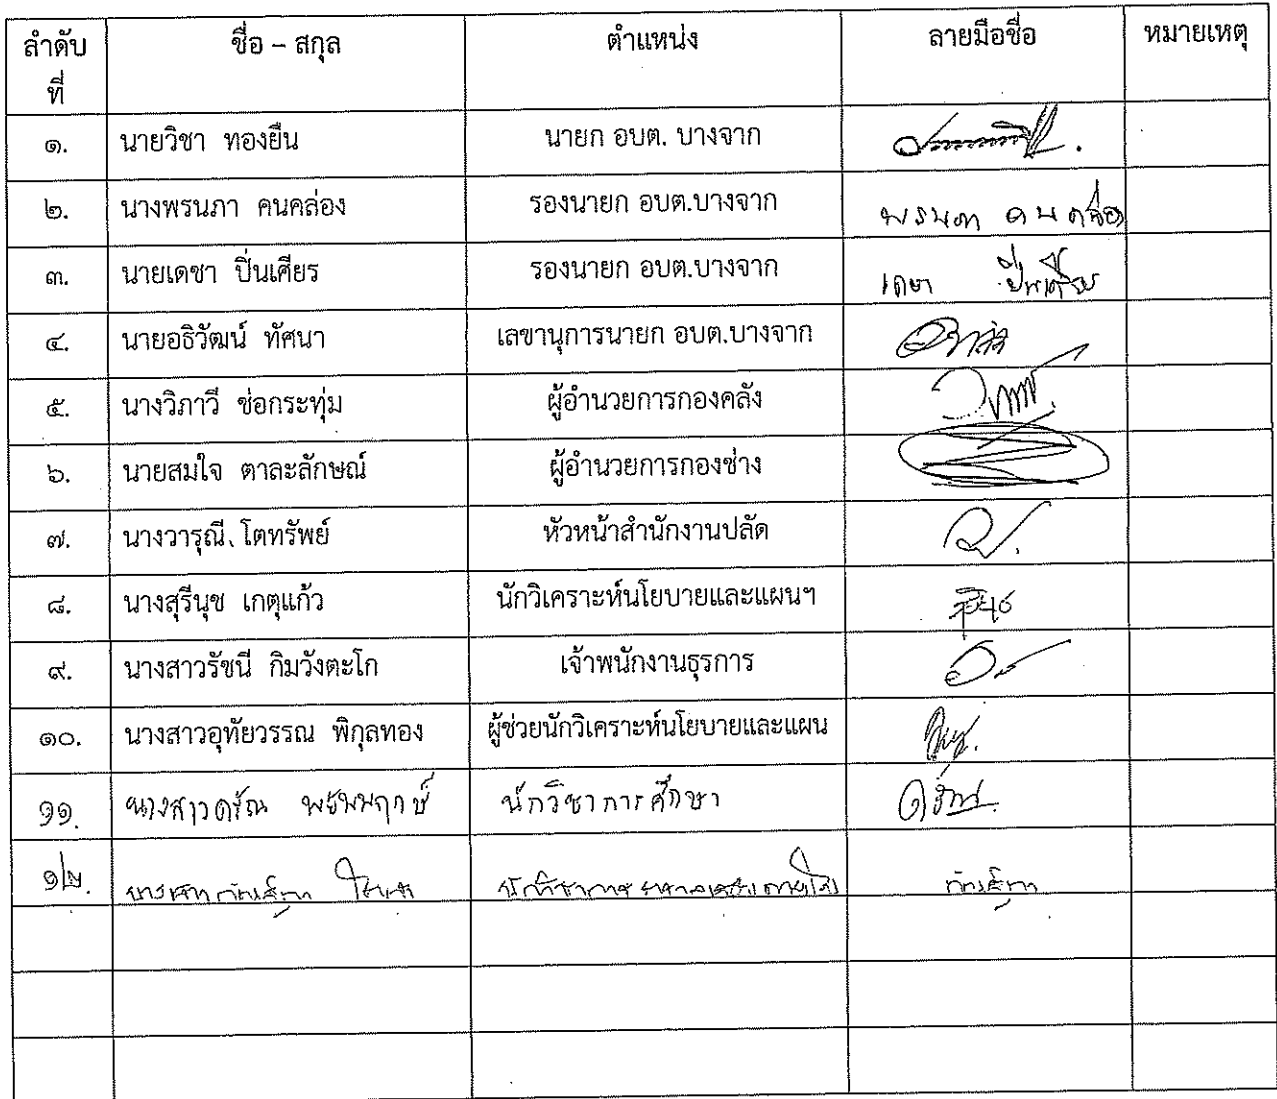 ลำดับที่ ชื่อ – สกุล ตำแหน่ง ลายมือชื่อ หมายเหตุ
๑. นายวิชา ทองยืน นายก อบต. บางจาก
๒. นางพรนภา คนคล่อง รองนายก อบต.บางจาก พรนภา คนคล่อง
๓. นายเดชา ปิ่นเศียร รองนายก อบต.บางจาก เดชา ปิ่นเศียร
๔. นายอธิวัฒน์ ทัศนา เลขานุการนายก อบต.บางจาก
๕. นางวิภาวี ช่อกระทุ่ม ผู้อำนวยการกองคลัง
๖. นายสมใจ ตาละลักษณ์ ผู้อำนวยการกองช่าง
๗. นางวารุณี โตทรัพย์ หัวหน้าสำนักงานปลัด
๘. นางสุรีนุช เกตุแก้ว นักวิเคราะห์นโยบายและแผนฯ
๙. นางสาวรัชนี กิมวังตะโก เจ้าพนักงานธุรการ
๑๐. นางสาวอุทัยวรรณ พิกุลทอง ผู้ช่วยนักวิเคราะห์นโยบายและแผน
๑๑. นางสาวดรัณ นักวิชาการศึกษา
๑๒.